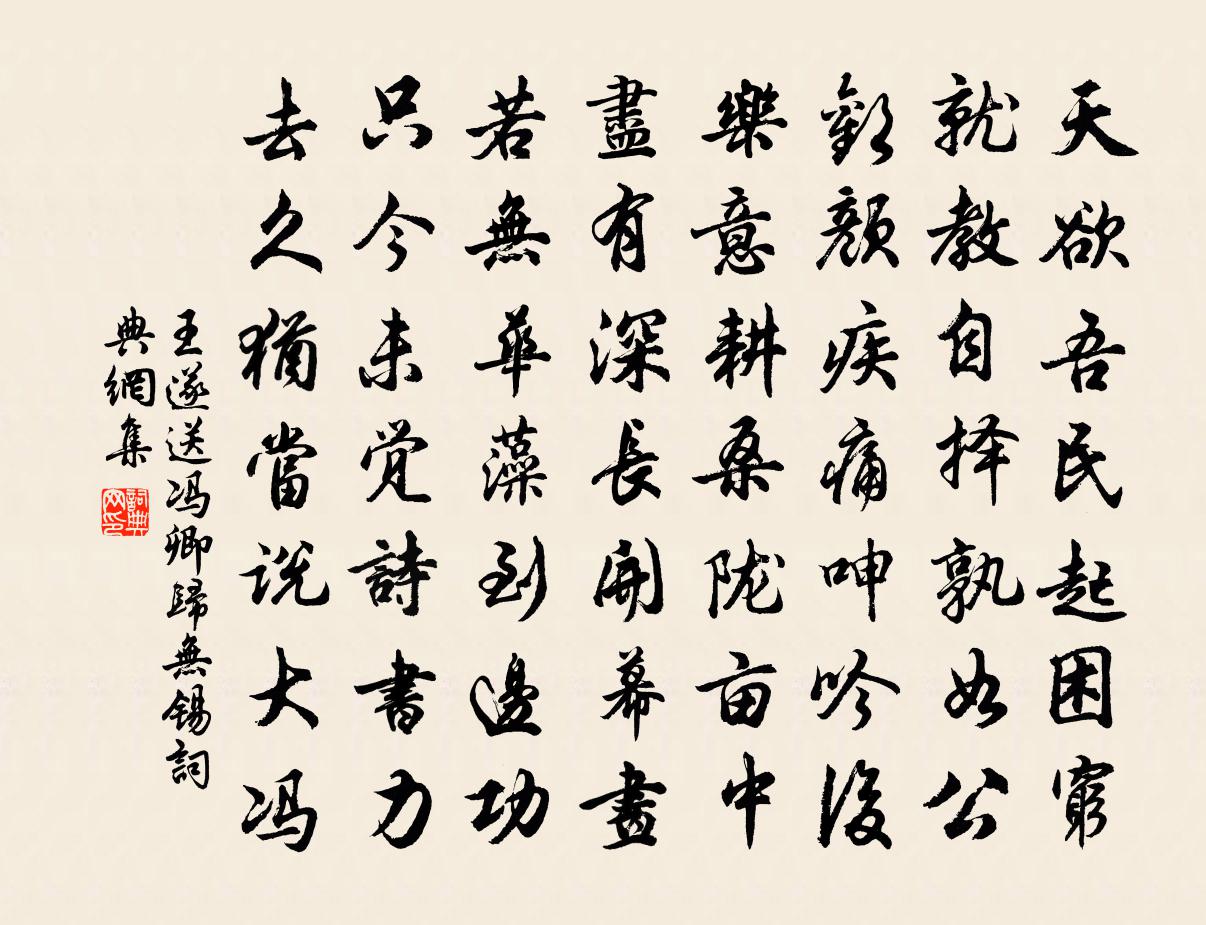 天欲吾民起困窮
就教自择孰如公
歡顏疾痛呻吟後
樂意耕桑陇亩中
盡有深長開幕畫
若無華藻到邊功
只今未觉詩書力
去久猶當説大冯
王遂送冯卿歸無錫詞
典網集
詞典网印